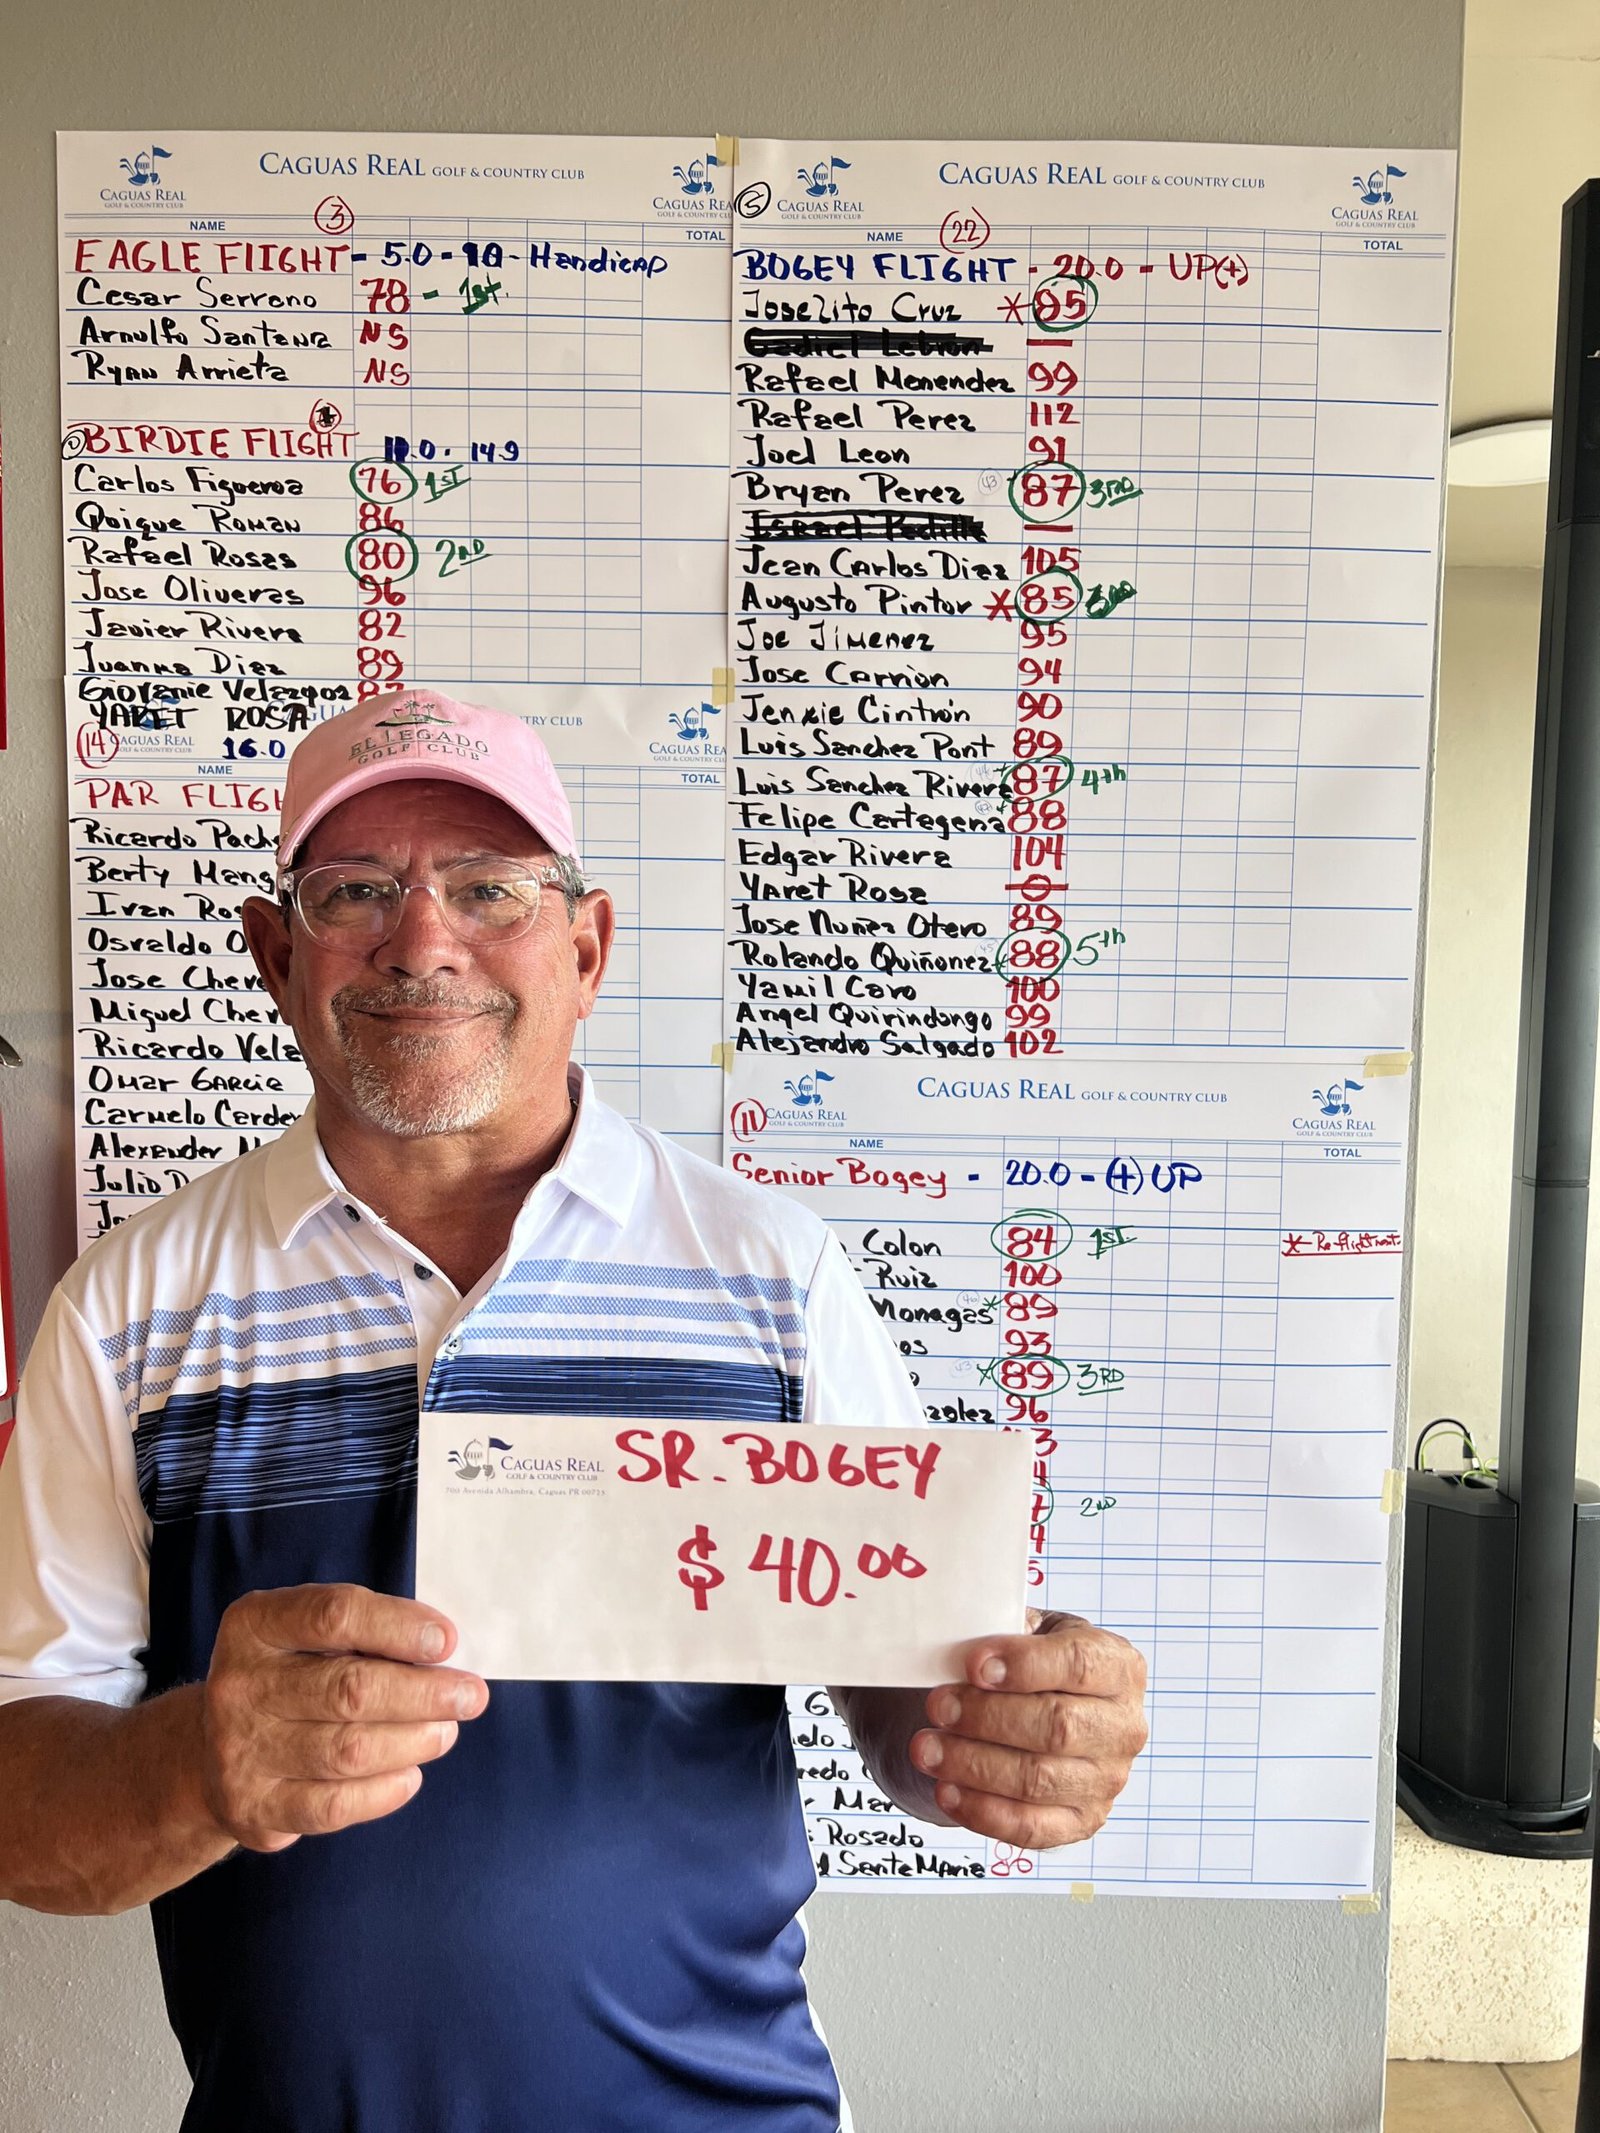 CAGUAS REAL GOLF & COUNTRY CLUB
CAGUAS REAL
GOLF & COUNTRY CLUB
3
NAME
TOTAL
EAGLE FLIGHT - 5.0 - 10 - Handicap
Cesar Serrano 78 - 1st.
Arnulfo Santana NS
Ryan Arrieta NS
BIRDIE FLIGHT 11.0 - 14.9
Carlos Figueroa 76 1ST
Quique Roman 86
Rafael Rosas 80 2ND
Jose Oliveras 96
Javier Rivera 82
Juanma Diaz 89
Giovanie Velazquez
YARET ROSA
14
CAGUAS REAL
GOLF & COUNTRY CLUB
16.0
NAME
TOTAL
PAR FLIGH
Ricardo Pach
Berty Mang
Ivan Ros
Osvaldo O
Jose Cheve
Miguel Chev
Ricardo Vela
Omar Garcia
Carmelo Carde
Alexander
Julio D
5
CAGUAS REAL GOLF & COUNTRY CLUB
CAGUAS REAL
GOLF & COUNTRY CLUB
CAGUAS REAL
GOLF & COUNTRY CLUB
NAME
22
TOTAL
BOGEY FLIGHT - 20.0 - UP(+)
Joselito Cruz * 85
Rafael Menendez 99
Rafael Perez 112
Joel Leon 91
Bryan Perez 43 87 3RD
Jean Carlos Diaz 105
Augusto Pintor * 85
Joe Jimenez 95
Jose Carrión 94
Jenxie Cintrón 90
Luis Sanchez Pont 89
Luis Sanchez Rivera 87 4th
Felipe Cartagena 88
Edgar Rivera 104
Yaret Rosa
Jose Nuñez Otero 89
Rolando Quiñonez 88 5th
Yamil Caro 100
Angel Quirindongo 99
Alejandro Salgado 102
11
CAGUAS REAL GOLF & COUNTRY CLUB
CAGUAS REAL
GOLF & COUNTRY CLUB
CAGUAS REAL
GOLF & COUNTRY CLUB
NAME
TOTAL
Senior Bogey - 20.0 - (+) UP
Colon 84 1ST
Ruiz 100
Monagas * 89
os 93
89 3RD
96
2ND
Mar
Rosado
Sante Maria 86
EL LEGADO
GOLF CLUB
CAGUAS REAL
GOLF & COUNTRY CLUB
700 Avenida Alhambra, Caguas PR 00725
SR. BOGEY
$ 40.00